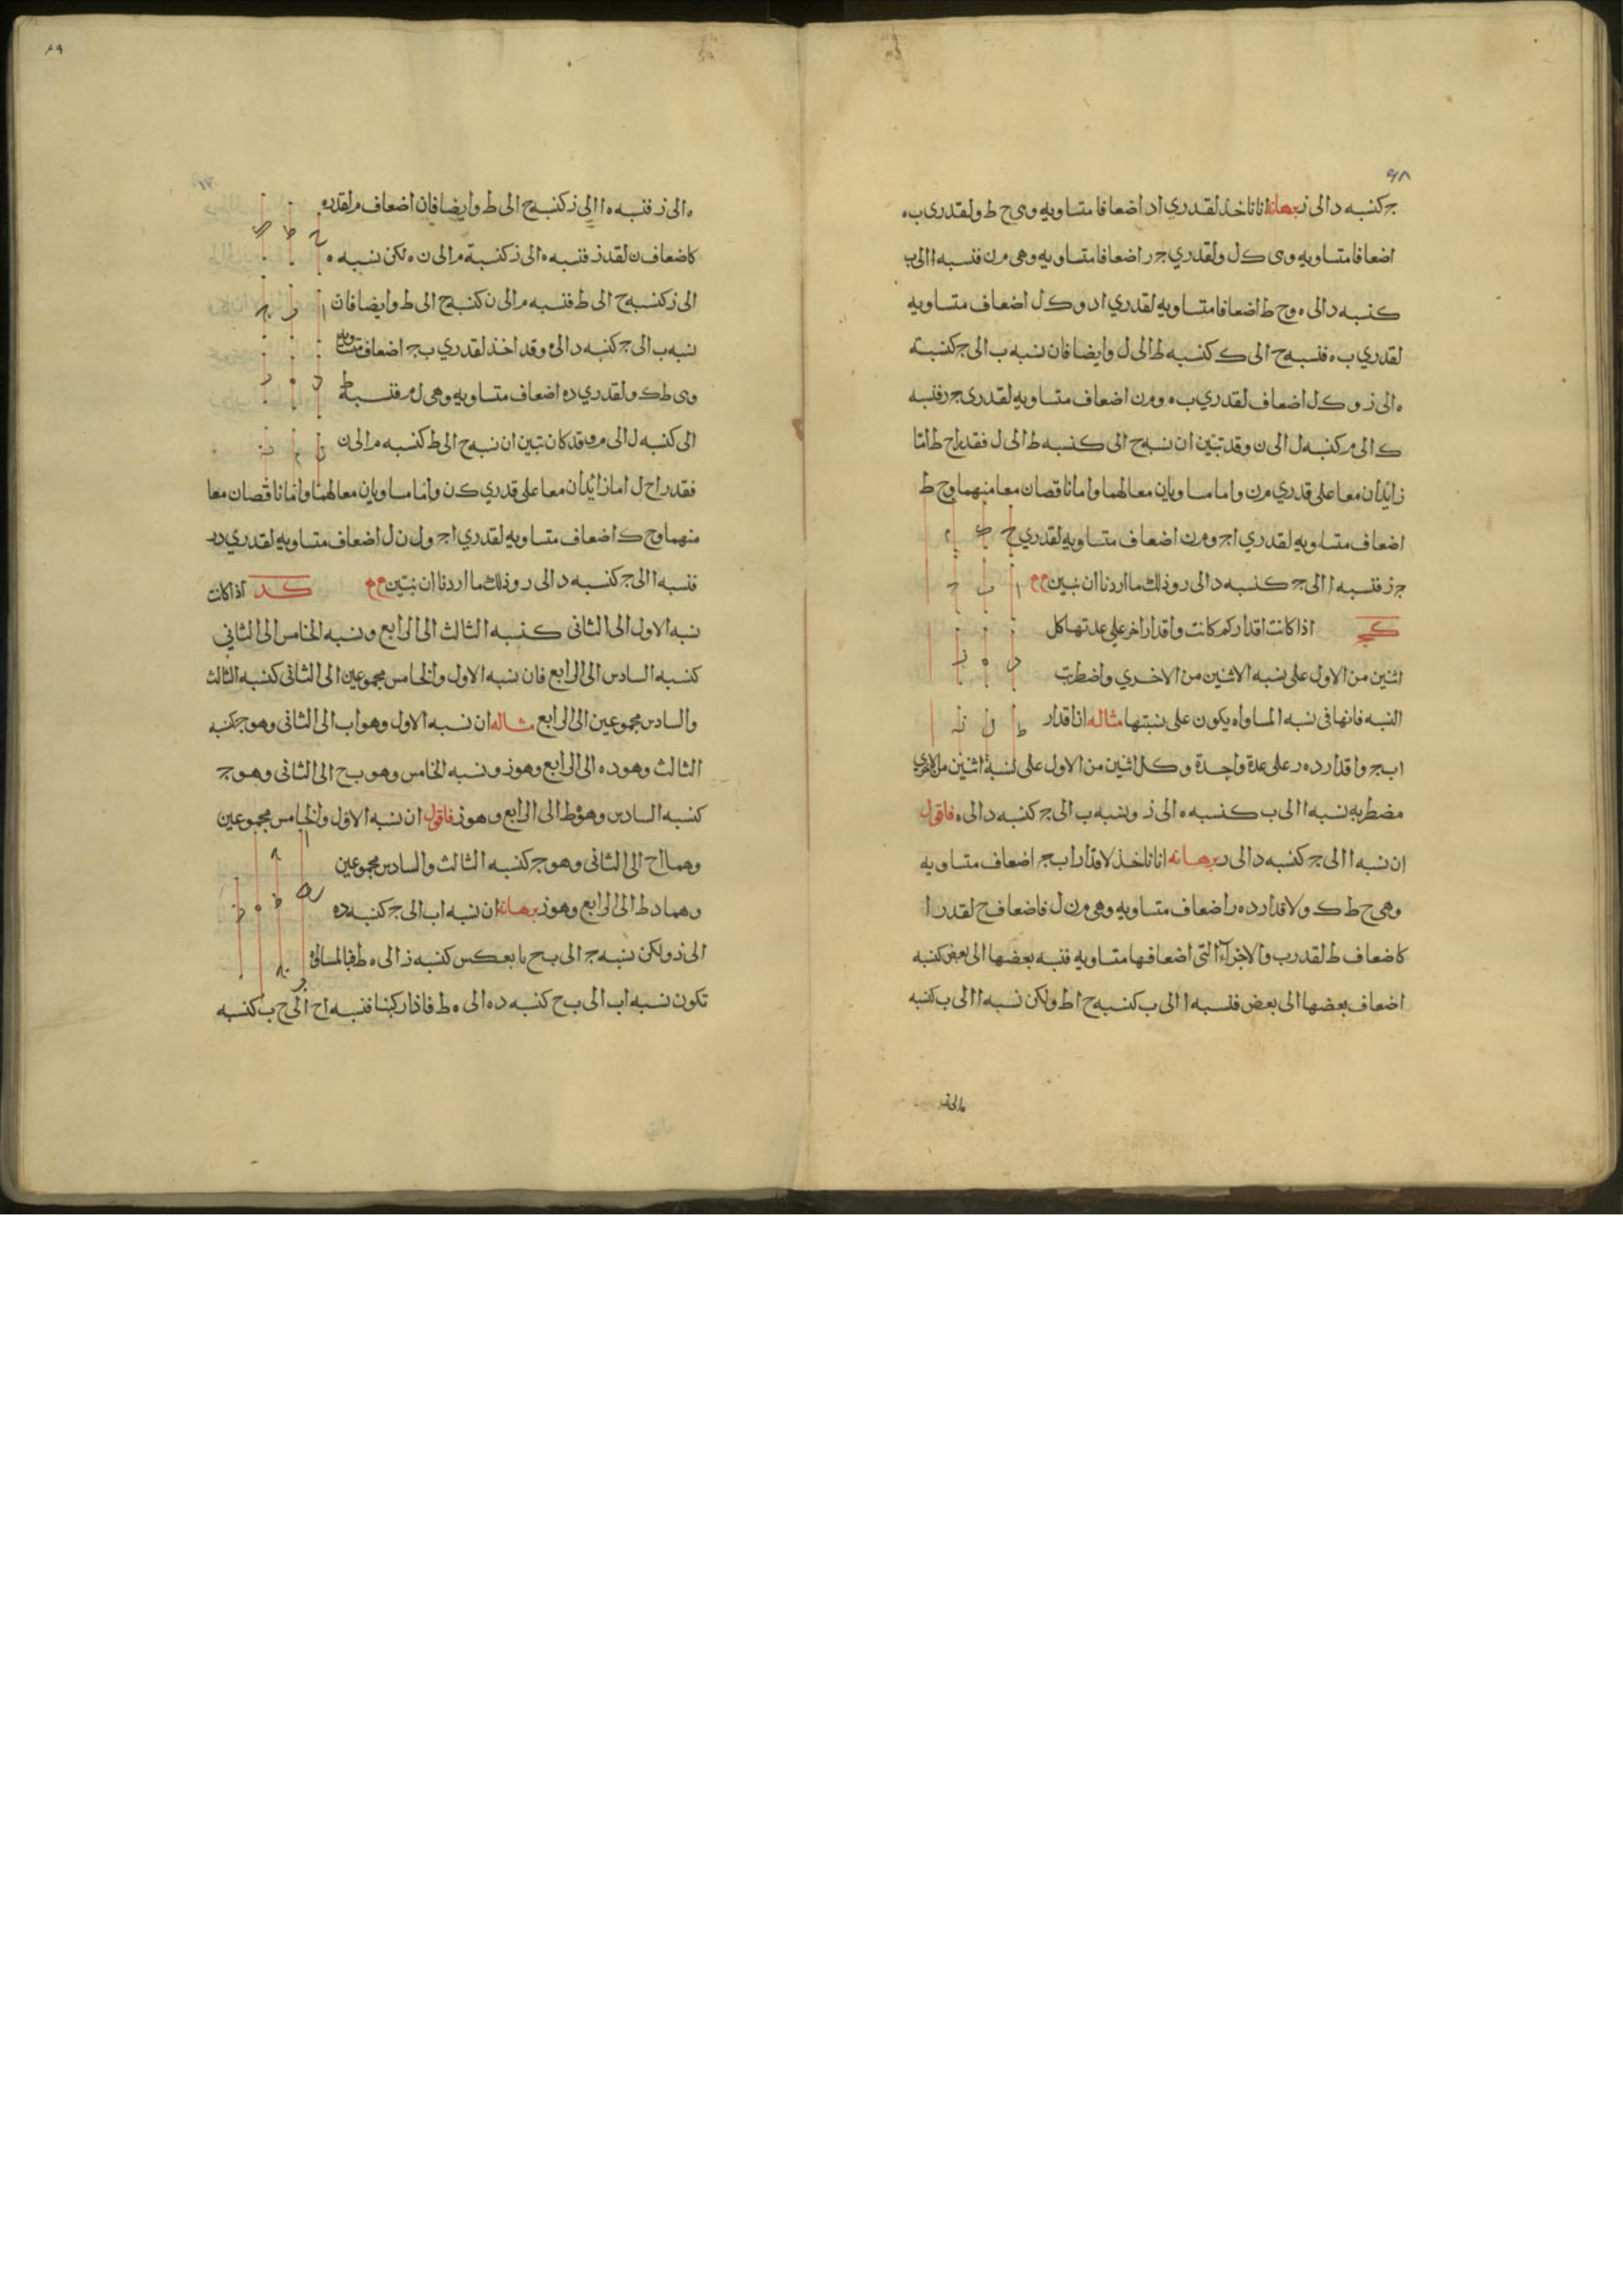 ٦٨
ج كنسبه د الى ز برهانه انا ناخذ لقدري ا د اضعافا متساويه وهى ح ط ولقدرى ب ه
اضعافا متساويه وهى ك ل ولقدري ج ر اضعافا متساويه وهى م ن فنسبه ا الى ب
كنسبه د الى ه و ح ط اضعافا متساويه لقدري ا د و ك ل اضعاف متساويه
لقدري ب ه فنسبه ح الى ك كنسبه ط الى ل وايضا فان نسبه ب الى ج كنسبة
ه الى ز و ك ل اضعاف لقدري ب ه و م ن اضعاف متساويه لقدرى ج ر فنسبه
ك الى م كنسبه ل الى ن وقد تبين ان نسبه ح الى ك كنسبه ط الى ل فقدرا ح ط اما
زايدان معا على قدري م ن واما مساويان معا لهما واما ناقصان معا منهما و ح ط
اضعاف متساويه لقدري ا د و م ن اضعاف متساويه لقدري
ج ز فنسبه ا الى ج كنسبه د الى ر وذلك ما اردنا ان نبين
كج اذا كانت اقدار كم كانت واقدار اخر على عدتها كل
اثنين من الاول على نسبه الاثنين من الاخري واضطربت
النسبه فانها فى نسبه المساواه يكون على نسبتها مثاله ان اقدار
ا ب ج واقدار د ه ر على عدة واحدة وكل اثنين من الاول على نسبة اثنين من الاخرى
مضطربه نسبه ا الى ب كنسبه ه الى ز ونسبه ب الى ج كنسبه د الى ه فاقول
ان نسبه ا الى ج كنسبه د الى ر برهانه انا ناخذ لاقدار ا ب ج اضعاف متساويه
وهى ح ط ك ولاقدار د ه ر اضعاف متساويه وهى م ن ل فاضعاف ح لقدر ا
كاضعاف ط لقدر ب والاجزآء التى اضعافها متساويه فنسبه بعضها الى بعض كنسبه
اضعاف بعضها الى بعض فنسبه ا الى ب كنسبه ح ا ط ولكن نسبه ا الى ب كنسبه
٦٩
ه الى ز فنسبه ه ا الى ز كنسبه ح الى ط وايضا فان اضعاف م لقدر ه
كاضعاف ن لقدر ز فنسبه ه الى ز كنسبة م الى ن ه لكن نسبه ه
الى ز كنسبه ح الى ط فنسبه م الى ن كنسبه ح الى ط وايضا فان
نسبه ب الى ج كنسبه د الى ه وقد اخذ لقدري ب ج اضعاف متساويه
وهى ط ك ولقدري د ه اضعاف متساويه وهى ل م فنسبة ط
الى ك نسبه ل الى م وقد كان تبين ان نسبه ح الى ط كنسبه م الى ن
فقدرا ح ل اما زائدان معا على قدري ك ن واما مساويان معا لهما واما ناقصان معا
منهما و ح ك اضعاف متساويه لقدري ا ج و ل ن ل اضعاف متساويه لقدري د ر
فنسبه ا الى ج كنسبه د الى ر وذلك ما اردنا ان نبين كد اذا كانت
نسبه الاول الى الثانى كنسبه الثالث الى الرابع ونسبه الخامس الى الثاني
كنسبه السادس الى الرابع فان نسبه الاول والخامس مجموعين الى الثانى كنسبه الثالث
والسادس مجموعين الى الرابع مثاله ان نسبه الاول وهو ا ب الى الثانى وهو ج كنسبه
الثالث وهو د ه الى الرابع وهو ز ونسبه الخامس وهو ب ح الى الثانى وهو ج
كنسبه السادس وهو ه ط الى الرابع وهو ز فاقول ان نسبه الاول والخامس مجموعين
وهما ا ح الى الثانى وهو ج كنسبه الثالث والسادس مجموعين
وهما د ط الى الرابع وهو ز برهانه ان نسبه ا ب الى ج كنسبه د ه
الى ز ولكن نسبه ج الى ب ح بالعكس كنسبه ز الى ه ط فبالمساواة
تكون نسبه ا ب الى ب ح كنسبه د ه الى ه ط فاذا ركبنا فنسبه ا ح الى ح ب كنسبه